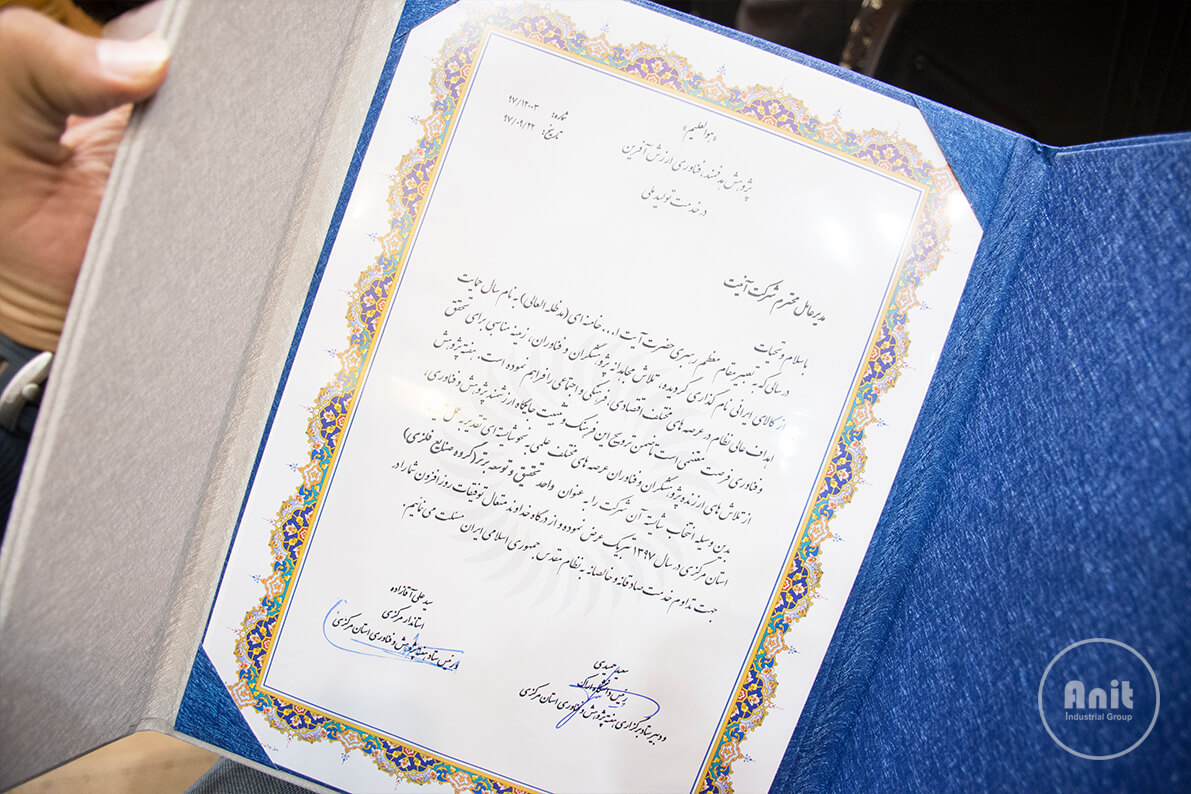 «هوالعلیم»
شماره: ۹۷/۱۲۰۰۳
تاریخ: ۹۷/۰۹/۲۴
پژوهش هدفمند، فناوری ارزش آفرین
در خدمت تولید ملی
مدیرعامل محترم شرکت آنیت
با سلام و تحیات
در سالی که به تعبیر مقام معظم رهبری حضرت آیت ا... خامنه ای (مدظله العالی) به نام سال حمایت
از کالای ایرانی نام گذاری گردیده، تلاش مجاهدانه پژوهشگران و فناوران، زمینه مناسبی برای تحقق
اهداف عالی نظام در عرصه های مختلف اقتصادی، فرهنگی و اجتماعی را فراهم نموده است. هفته پژوهش
و فناوری فرصت مغتنمی است تا ضمن ترویج این فرهنگ و تثبیت جایگاه ارزشمند پژوهش و فناوری،
از تلاش های ارزنده پژوهشگران و فناوران عرصه های مختلف علمی به نحو شایسته ای تقدیر به عمل
بدین وسیله انتخاب شایسته آن شرکت را به عنوان واحد تحقیق و توسعه برتر (گروه صنایع فلزی)
استان مرکزی در سال ۱۳۹۷ تبریک عرض نموده و از درگاه خداوند متعال توفیقات روزافزون شما را در
جهت تداوم خدمت صادقانه و خالصانه به نظام مقدس جمهوری اسلامی ایران مسئلت می نمائیم.
سید علی آقازاده
استاندار مرکزی
و رئیس ستاد هفته پژوهش و فناوری استان مرکزی
سعید حمیدی
رئیس دانشگاه اراک
و دبیر ستاد برگزاری هفته پژوهش و فناوری استان مرکزی
Anit
Industrial Group